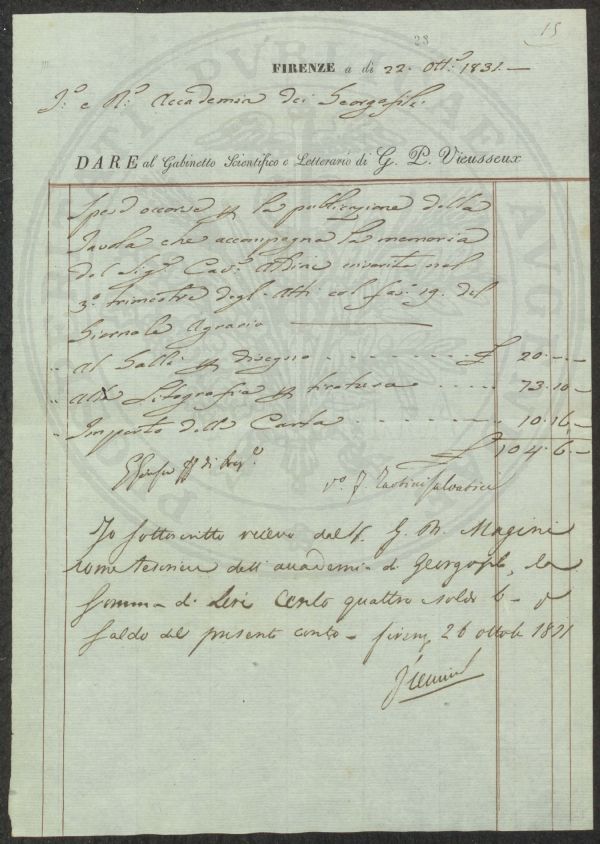 15
23
FIRENZE a di 22. Ott.e 1831.—
I.e e R.e Accademia dei Georgofili
DARE al Gabinetto Scientifico e Letterario di G. P. Vieusseux
Spese occorse p la pubblicazione della
Tavola che accompagna la memoria
del Sig.r Cav.r inserita nel
3.o trimestre degli Atti col fas.o 19. del
Giornale Agrario
" al Galli p disegno £ 20.-.-
" alla Litografia p tiratura 73.10-
" Importo della Carta 10.16-
£ 104.6-
V.o F. Tartini Salvatici
Io sottoscritto ricevo dal S. G. B. Magini
come tesoriere dell'accademia di Georgofili, la
somma di Lire Cento quattro soldi 6- p
saldo del presente conto- firenze 26 ottob 1831
Vieusseux